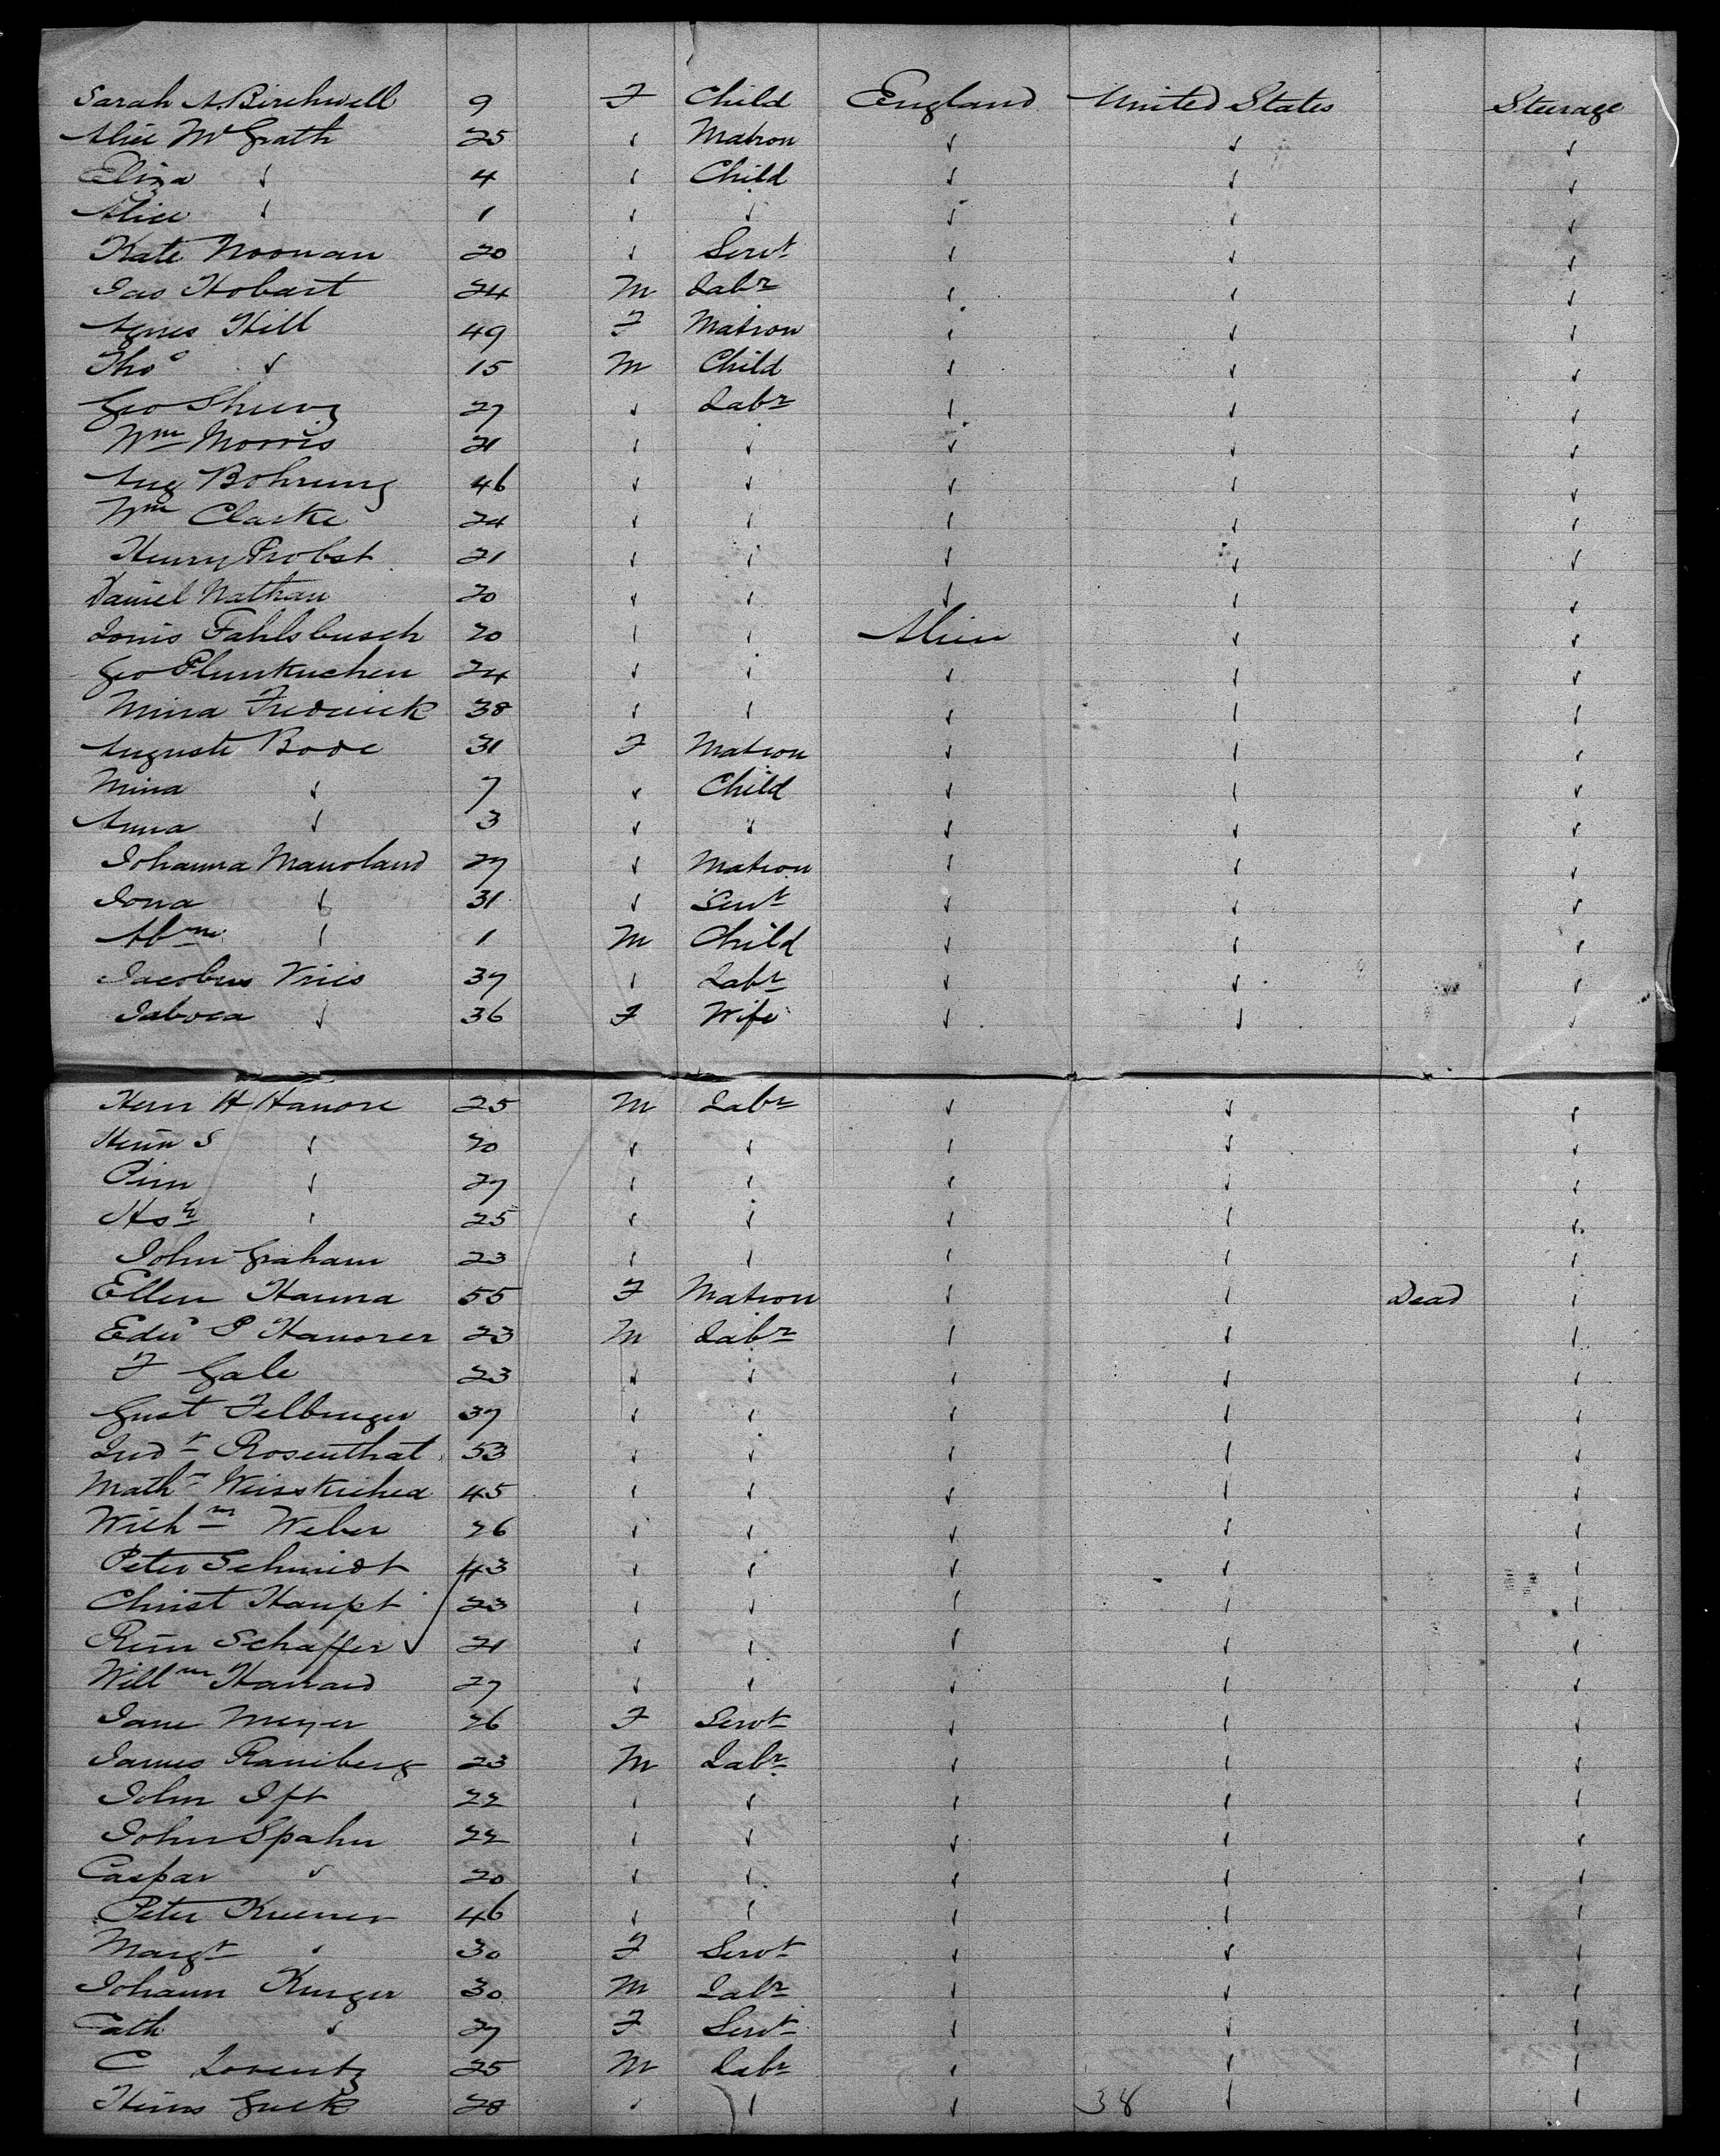 Sarah A. Birchwell 9 F Child England United States Steerage
Alice McGrath 25 ✓ Matron ✓ ✓ ✓
Eliza ✓ 4 ✓ Child ✓ ✓ ✓
Alice ✓ 1 ✓ ✓ ✓ ✓ ✓
Kate Noonan 20 ✓ Servt ✓ ✓ ✓
Jas Hobart 24 M Labr ✓ ✓ ✓
Agnes Hill 49 F Matron ✓ ✓ ✓
Thos ✓ 15 M Child ✓ ✓ ✓
Geo 27 ✓ Labr ✓ ✓ ✓
Wm Morris 21 ✓ ✓ ✓ ✓ ✓
Aug Bohrung 46 ✓ ✓ ✓ ✓ ✓
Wm Clarke 24 ✓ ✓ ✓ ✓ ✓
Henry Probst 21 ✓ ✓ ✓ ✓ ✓
Daniel Nathan 20 ✓ ✓ ✓ ✓ ✓
Louis Fahlsbusch 20 ✓ ✓ Alien ✓ ✓
Geo 24 ✓ ✓ ✓ ✓ ✓
Mina Frederick 38 ✓ ✓ ✓ ✓ ✓
Auguste Bode 31 F Matron ✓ ✓ ✓
Mina ✓ 7 ✓ Child ✓ ✓ ✓
Anna ✓ 3 ✓ ✓ ✓ ✓ ✓
Johanna 27 ✓ Matron ✓ ✓ ✓
Jona ✓ 31 ✓ Servt ✓ ✓ ✓
Abm ✓ 1 M Child ✓ ✓ ✓
Jacobus Vries 37 ✓ Labr ✓ ✓ ✓
✓ 36 F Wife ✓ ✓ ✓
H 25 M Labr ✓ ✓ ✓
S ✓ 20 ✓ ✓ ✓ ✓ ✓
✓ 27 ✓ ✓ ✓ ✓ ✓
✓ 25 ✓ ✓ ✓ ✓ ✓
John Graham 23 ✓ ✓ ✓ ✓ ✓
Ellen Hanna 55 F Matron ✓ ✓ Dead ✓
Edwd P Hanover 23 M Labr ✓ ✓ ✓
F Gale 23 ✓ ✓ ✓ ✓ ✓
Gust Felbinger 37 ✓ ✓ ✓ ✓ ✓
Rosenthal 53 ✓ ✓ ✓ ✓ ✓
45 ✓ ✓ ✓ ✓ ✓
Wilhm Weber 26 ✓ ✓ ✓ ✓ ✓
Peter Schmidt 43 ✓ ✓ ✓ ✓ ✓
Christ Haupt 23 ✓ ✓ ✓ ✓ ✓
Schaffer ✓ 21 ✓ ✓ ✓ ✓ ✓
Willm 27 ✓ ✓ ✓ ✓ ✓
Jane Meyer 26 F Servt ✓ ✓ ✓
James Raniberg 23 M Labr ✓ ✓ ✓
John Ift 22 ✓ ✓ ✓ ✓ ✓
John Spahn 22 ✓ ✓ ✓ ✓ ✓
Caspar ✓ 20 ✓ ✓ ✓ ✓ ✓
Peter 46 ✓ ✓ ✓ ✓ ✓
Margt ✓ 30 F Servt ✓ ✓ ✓
Johann 30 M Labr ✓ ✓ ✓
Cath ✓ 27 F Servt ✓ ✓ ✓
C Lorentz 25 M Labr ✓ ✓ ✓
28 ✓ ✓ ✓ 38 ✓ ✓